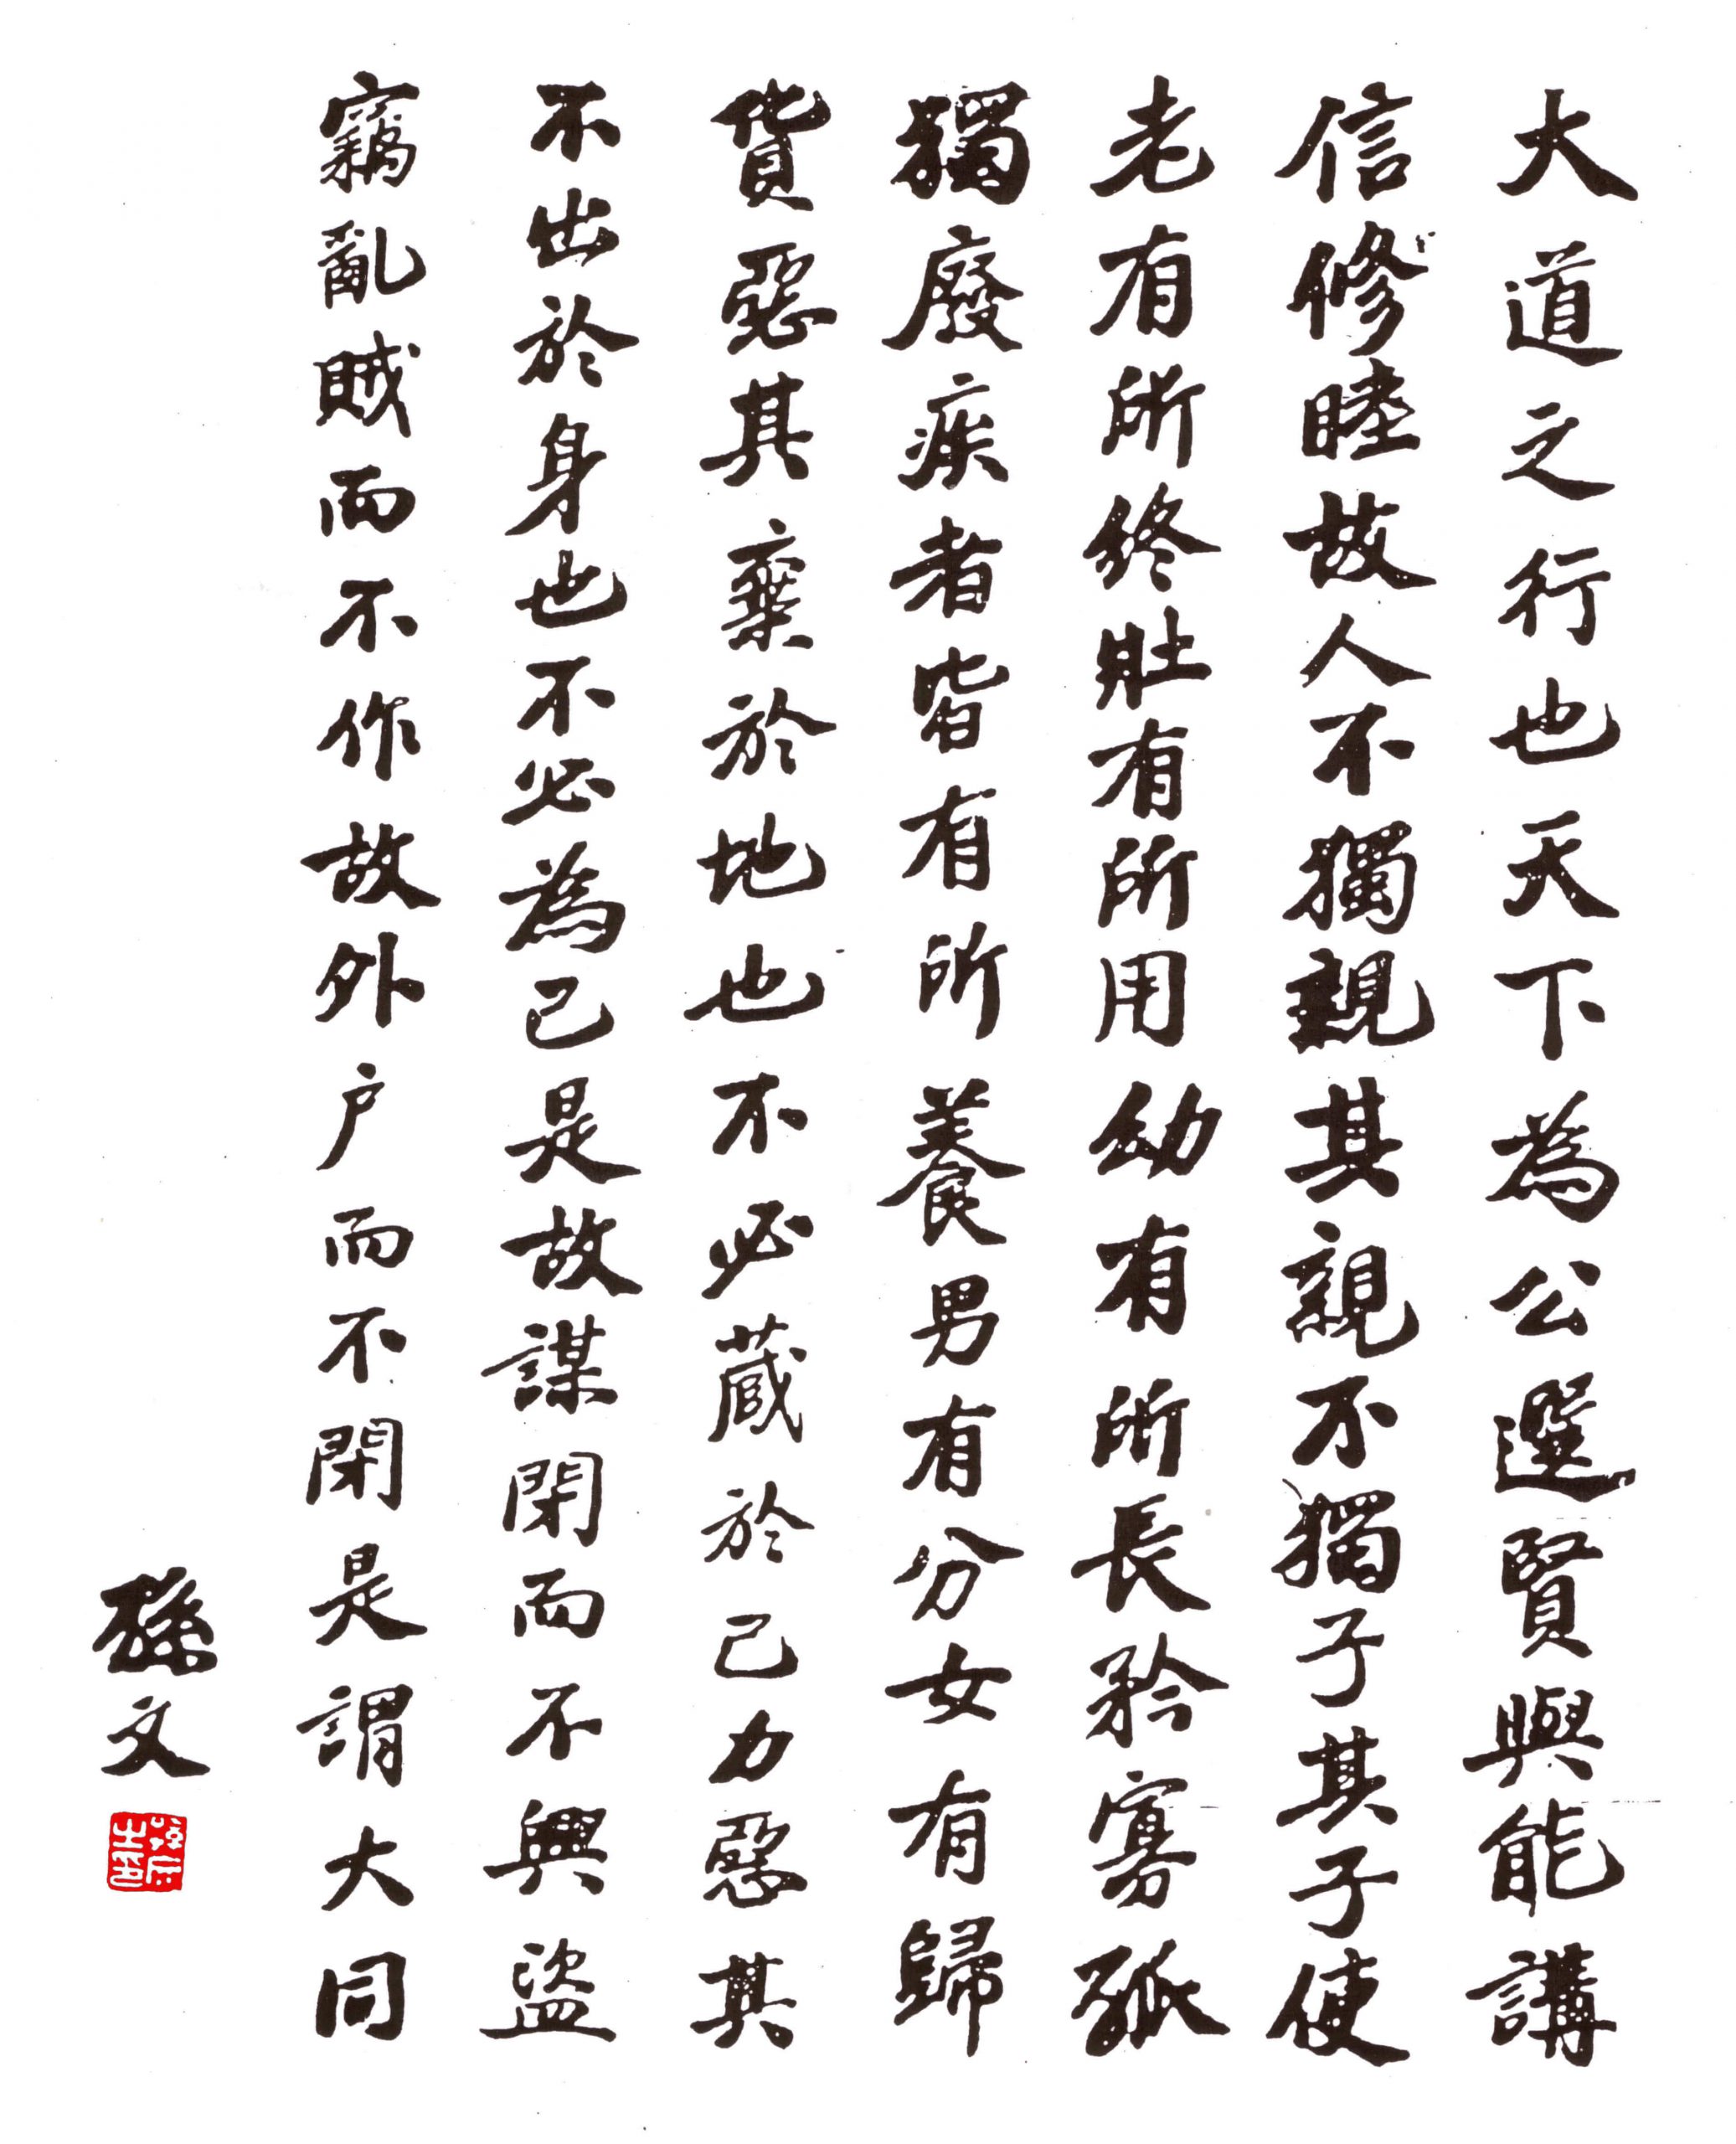 大道之行也天下為公選賢與能講
信修睦故人不獨親其親不獨子其子使
老有所終壯有所用幼有所長矜寡孤
獨廢疾者皆有所養男有分女有歸
貨惡其棄於地也不必藏於己力惡其
不出於身也不必為己是故謀閉而不興盜
竊亂賊而不作故外户而不閉是謂大同
孫文
孫文之印